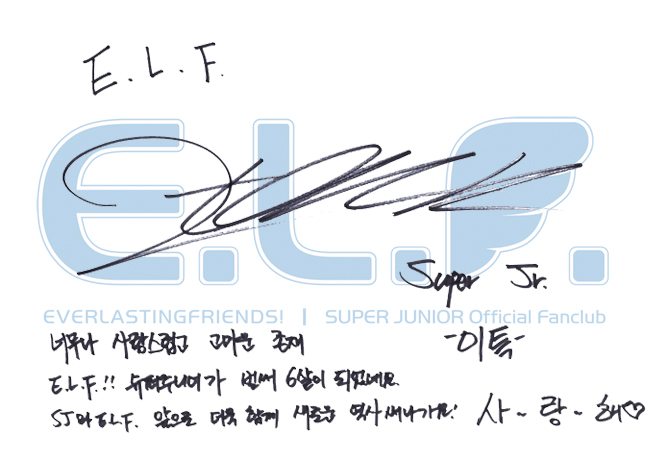 E.L.F.
E.L.F.
Super Jr.
EVERLASTINGFRIENDS! | SUPER JUNIOR Official Fanclub
너무나 사랑스럽고 고마운 존재 -이특-
E.L.F.!! 슈퍼주니어가 벌써 6살이 되었네요
SJ와 E.L.F. 앞으로 더욱 함께 새로운 역사 써나가요! 사~랑~해♡